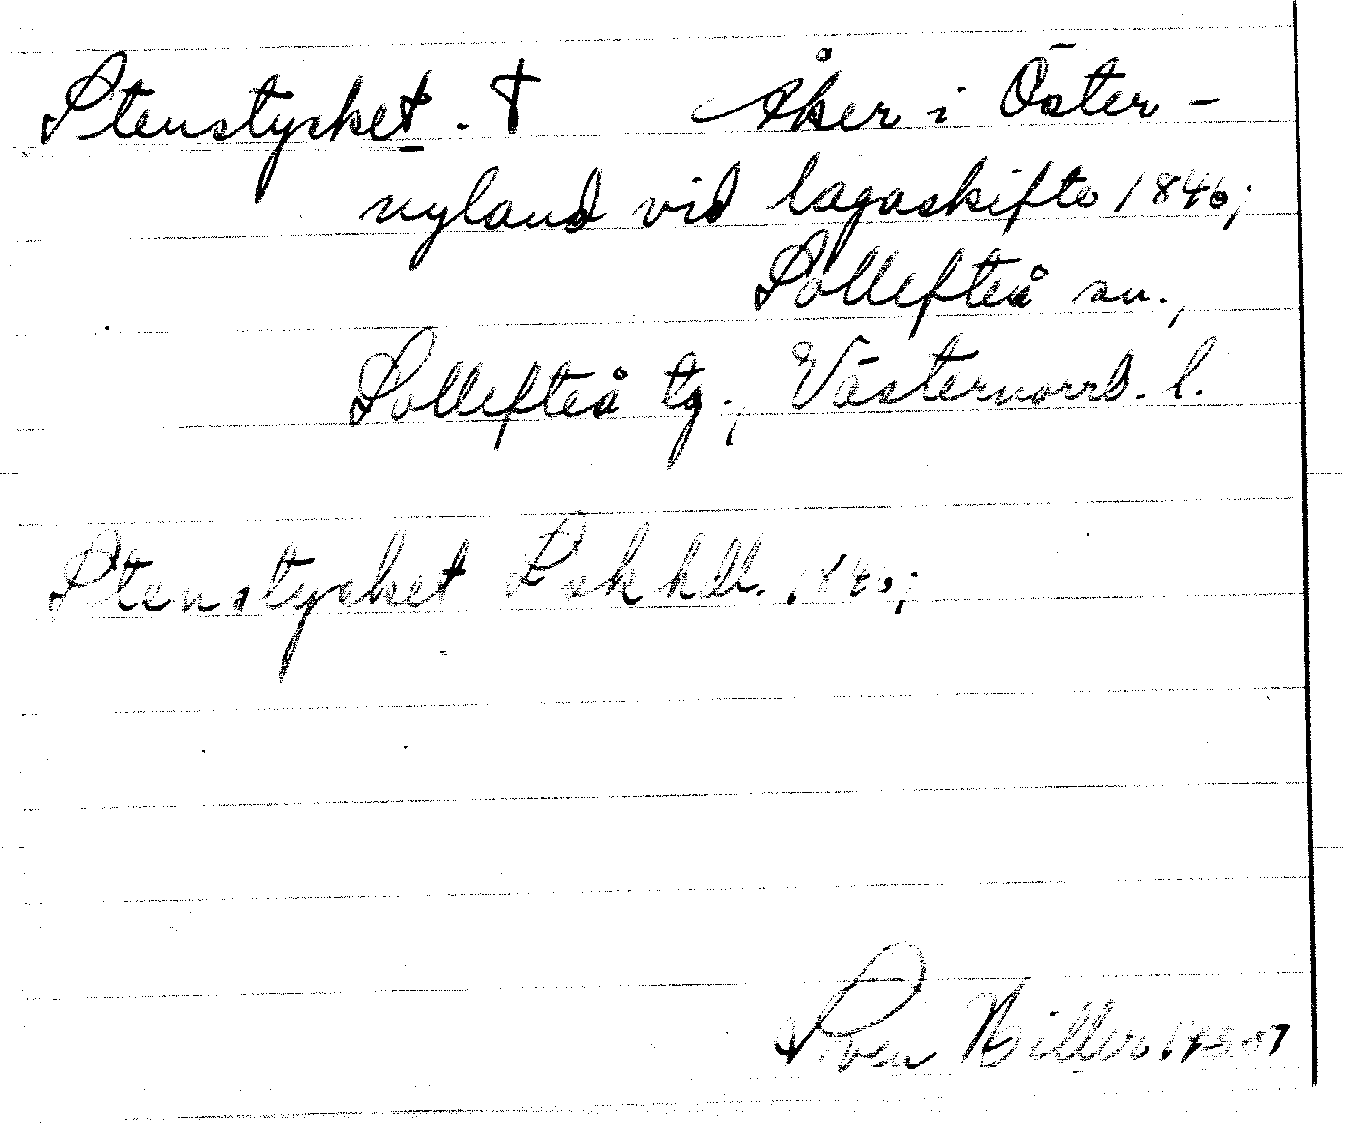 Stenstycket. † Åker i Öster-
nyland vid lagaskifte 1846;
Sollefteå sn.,
Sollefteå tg., Västernorrl. l.
Stenstycket Lskhdl. 1846;
Sven Hiller